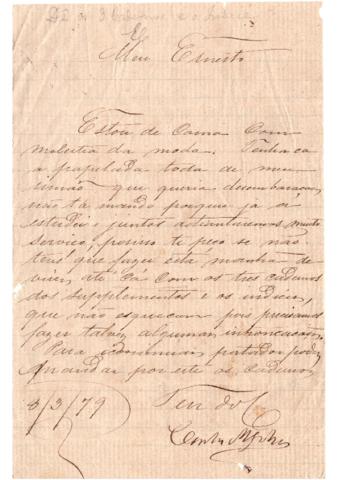 Meu Ernesto
Estou de cama com
molestia da moda. Tenho cá
a papelada toda de meu
irmão que queria desembaraçar,
não ta mando porque já a
estudei e juntos adiantaremos muito
serviço, porisso te peço se não
tens que fazer esta manhã de
vires até cá com os tres cadernos
dos supplementos e os indices,
que não esqueçam pois precisamos
fazer talvez algumas
Para economisar portador podes
mandar por este os cadernos
8/3/79 Teu do C.